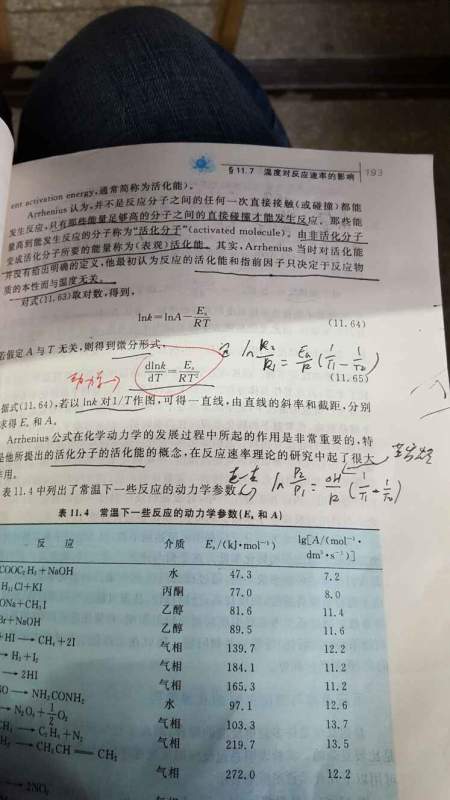 §11.7 温度对反应速率的影响 193
ent activation energy,通常简称为活化能)。
Arrhenius 认为,并不是反应分子之间的任何一次直接接触(或碰撞)都能
发生反应,只有那些能量足够高的分子之间的直接碰撞才能发生反应。那些能
量高到能发生反应的分子称为“活化分子”(activated molecule)。由非活化分子
变成活化分子所要的能量称为(表观)活化能。其实,Arrhenius 当时对活化能
并没有给出明确的定义,他最初认为反应的活化能和指前因子只决定于反应物
质的本性而与温度无关。
对式(11.63)取对数,得到,
lnk=lnA-Ea/RT (11.64)
若假定 A 与 T 无关,则得到微分形式,
ln k2/k1 = Ea/R (1/T1 - 1/T2)
动力学→
dlnk/dT=Ea/RT² (11.65)
据式(11.64),若以 lnk 对 1/T作图,可得一直线,由直线的斜率和截距,分别
求得 Ea 和 A。
Arrhenius 公式在化学动力学的发展过程中所起的作用是非常重要的,特
是他所提出的活化分子的活化能的概念,在反应速率理论的研究中起了很大
作用。
表 11.4 中列出了常温下一些反应的动力学参数。
ln P2/P1 = ΔH/R (1/T1 - 1/T2)
表 11.4 常温下一些反应的动力学参数(Ea 和 A)
反 应 介质 Ea/(kJ·mol⁻¹) lg[A/(mol⁻¹·
dm³·s⁻¹)]
COOC₂H₅+NaOH 水 47.3 7.2
H₁₁Cl+KI 丙酮 77.0 8.0
ONa+CH₃I 乙醇 81.6 11.4
Br+NaOH 乙醇 89.5 11.6
+HI→CH₄+2I 气相 139.7 12.2
→H₂+I₂ 气相 184.1 11.2
→2HI 气相 165.3 11.2
NO→NH₂CONH₂ 水 97.1 12.6
→N₂O₄+1/2O₂ 气相 103.3 13.7
CH₃→C₂H₆+N₂ 气相 219.7 13.5
H₂→CH₃CH=CH₂ 气相 272.0 12.2
→2NO₂